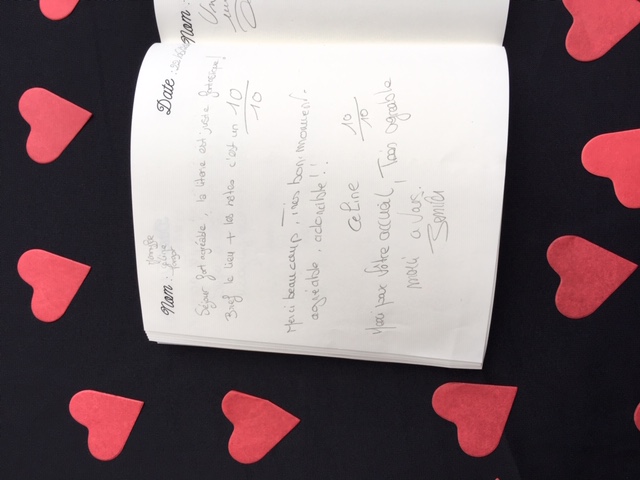 Nom :
Date :
Nom :
Séjour fort agréable, la literie est juste fantastique!
Bref le lieu + les notes c'est un 10/10
Merci beaucoup, très bon moment.
agréable, adorable!!
Celine 10/10
Merci pour votre accueil, Très agréable
merci a vous.